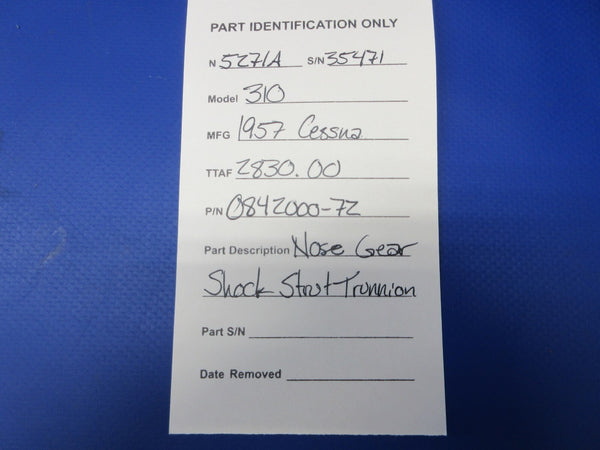 PART IDENTIFICATION ONLY
N 5271A S/N 35471
Model 310
MFG 1957 Cessna
TTAF 2830.00
P/N 0842000-72
Part Description Nose Gear
Shock Strut Trunnion
Part S/N
Date Removed